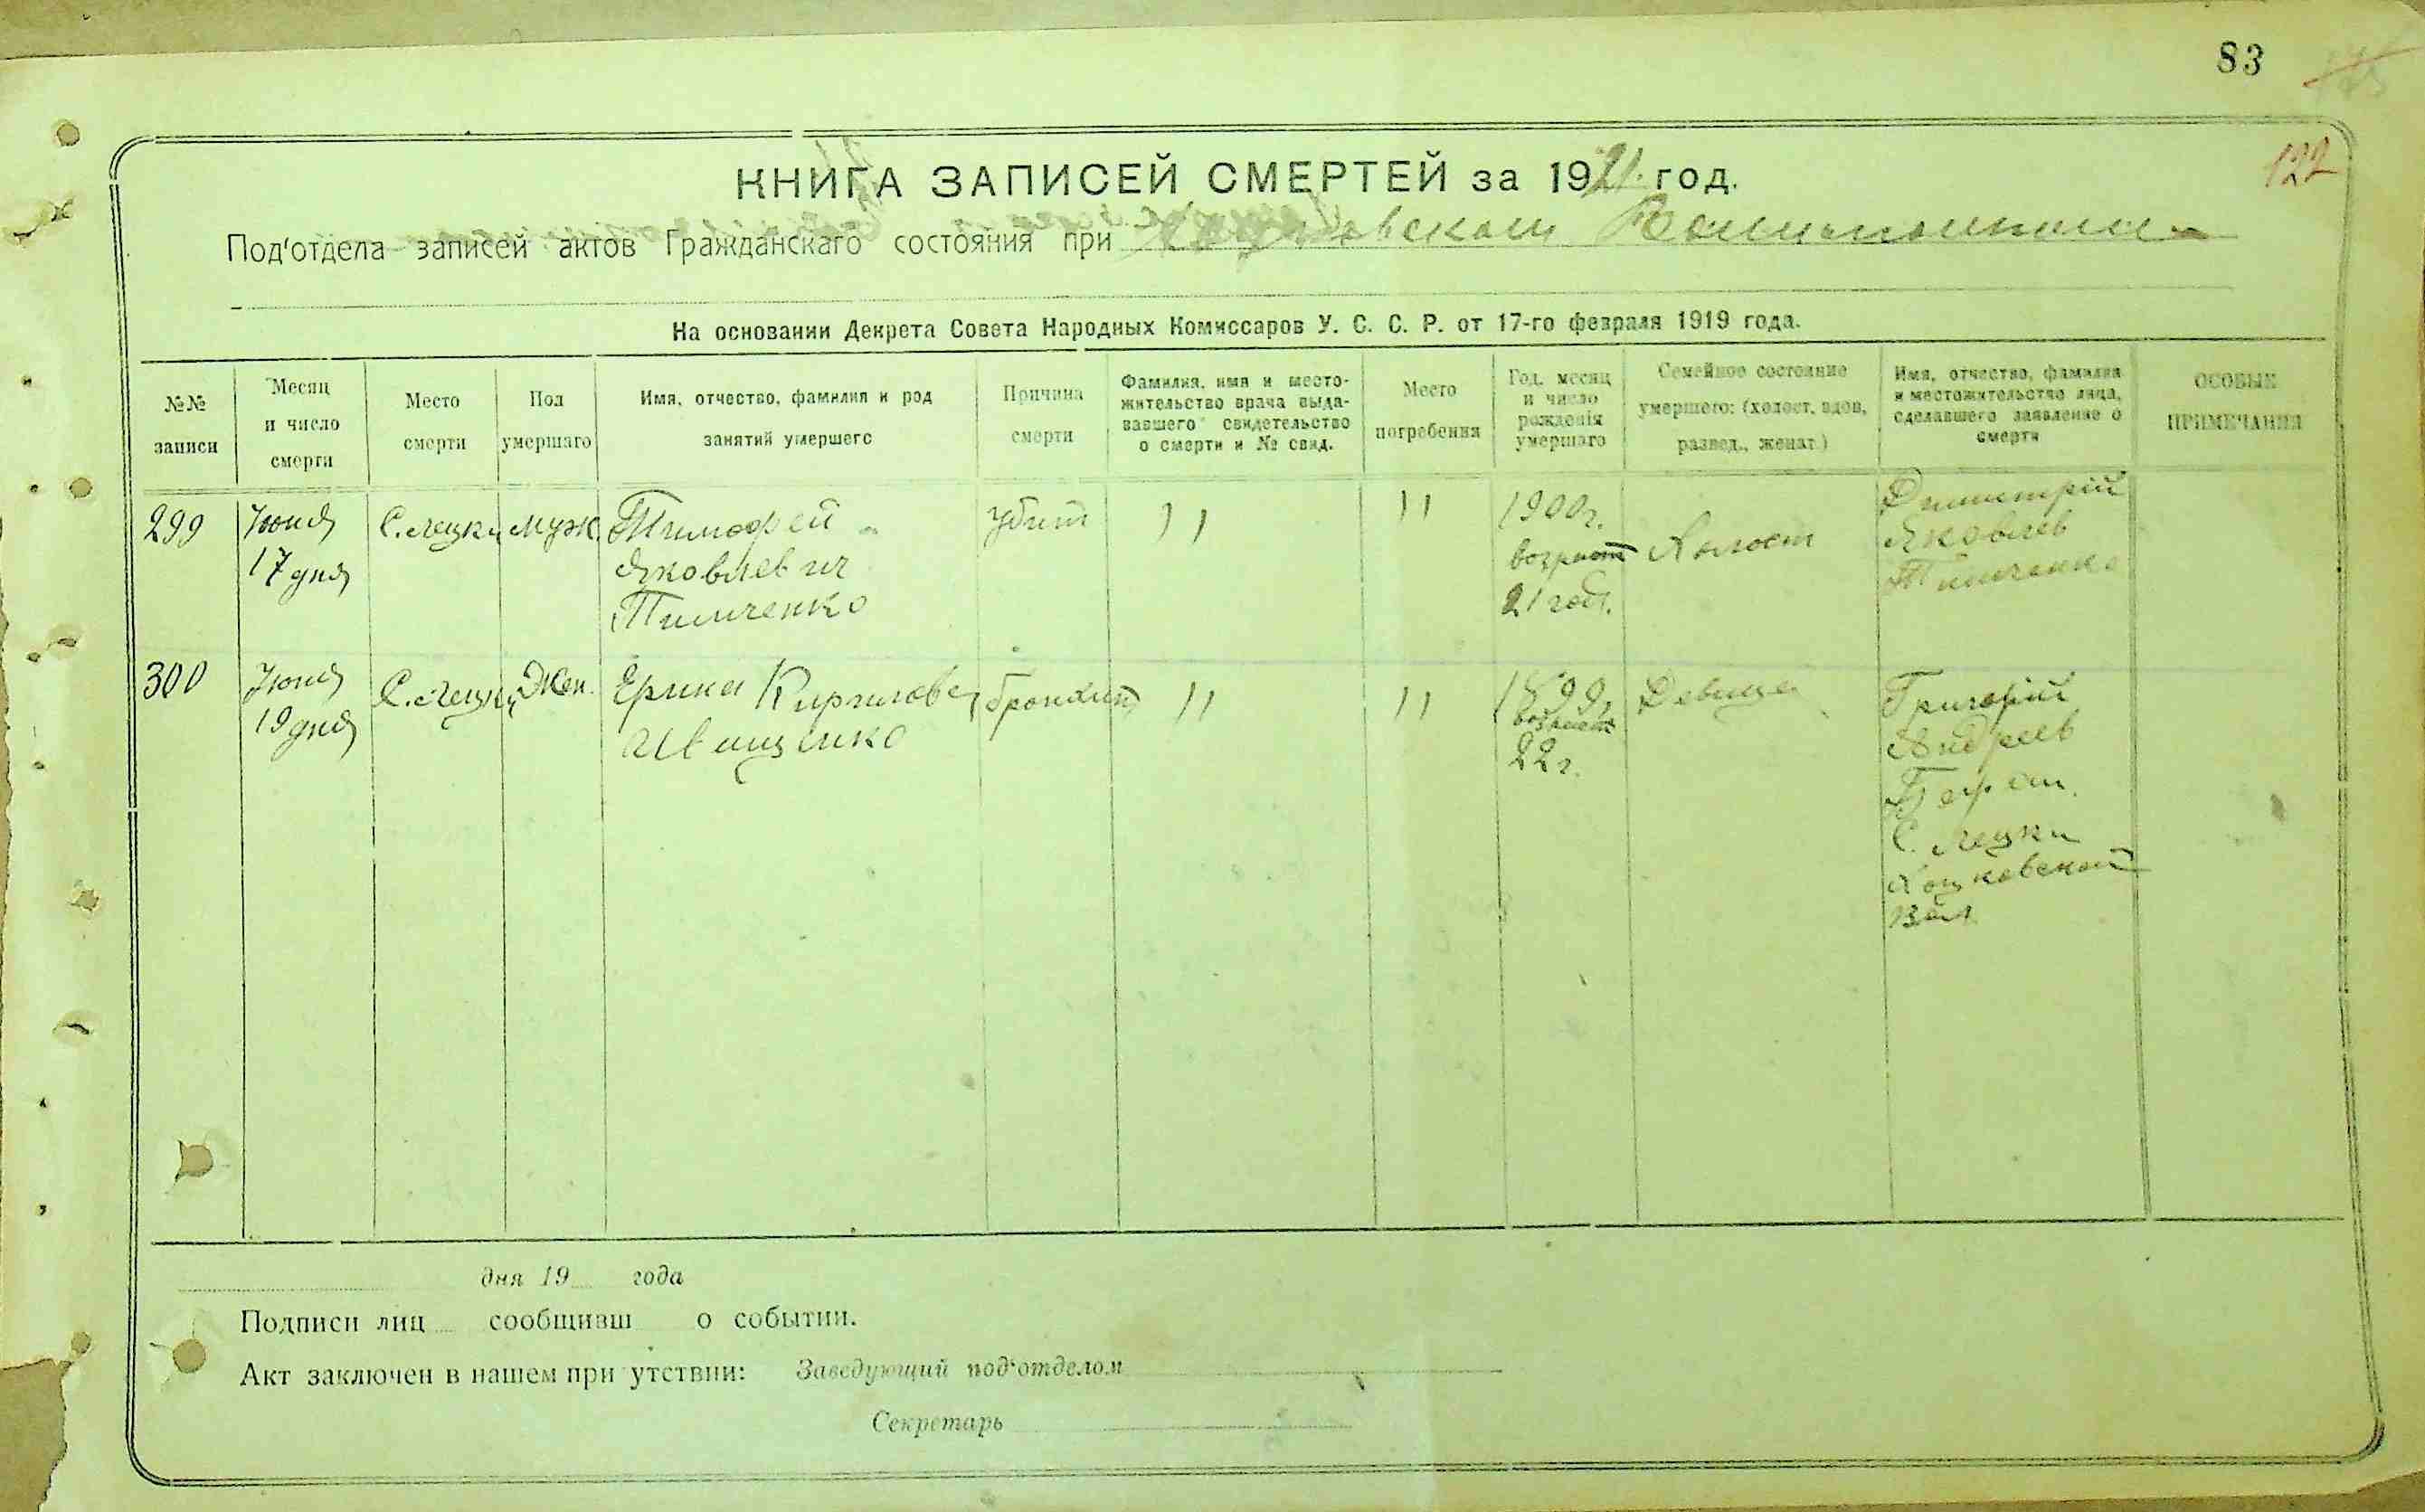 83
122
КНИГА ЗАПИСЕЙ СМЕРТЕЙ за 1921 год.
Под'отдела записей актов Гражданскаго состояния при
На основании Декрета Совета Народных Комиссаров У. С. С. Р. от 17-го февраля 1919 года.
№№ записи
Месяц и число смерти
Место смерти
Пол умершаго
Имя, отчество, фамилия и род занятий умершего
Причина смерти
Фамилия, имя и место-
жительство врача выда-
вавшего свидетельство
о смерти и № свид.
Место погребения
Год, месяц
и число
рождения
умершаго
Семейное состояние
умершего: (холост, вдов,
развед., женат.)
Имя, отчество, фамилия
и местожительство лица,
сделавшего заявление о
смерти
ОСОБЫЕ
ПРИМЕЧАНИЯ
299
Июня
17 дня
С. Лецки
муж.
Тимофей
Яковлевич
Тимченко
убит
"
"
1900г.
возраст
21 год.
Холост
Димитрій
Яковлев
Тимченко
300
Июня
19 дня
С. Лецки
Жен.
Кирилова
Иващенко
бронхит
"
"
1899
возраст
22 г.
Девица
Григорій
Андреев
С. Лецки
вол.
дня 19 года
Подписи лиц сообщивш о событии.
Акт заключен в нашем при утствии: Заведующий под'отделом
Секретарь